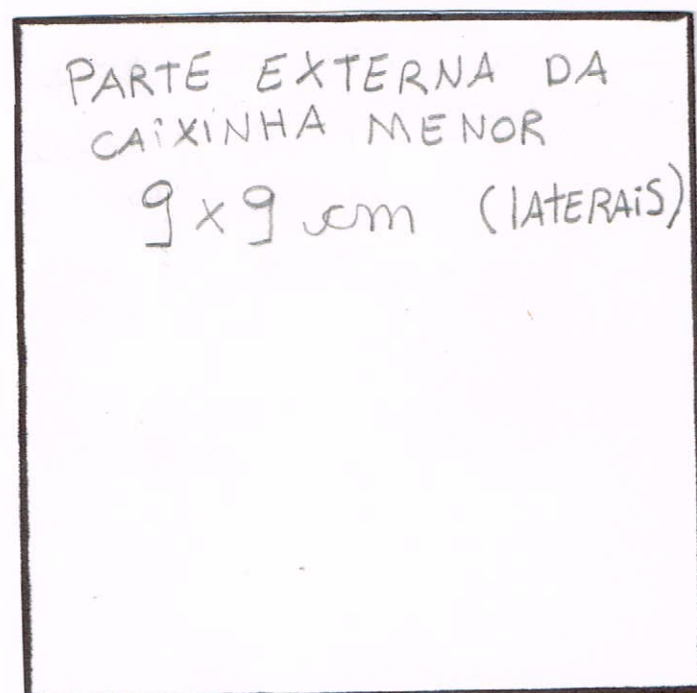 PARTE EXTERNA DA
CAIXINHA MENOR
9 x 9 cm (lATERAiS)